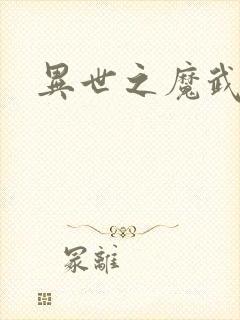 異世之魔武
冢離